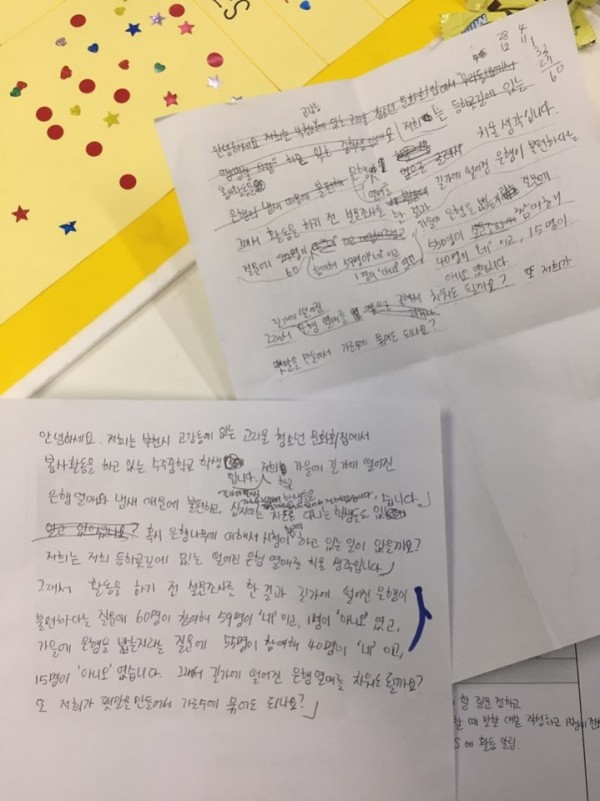 28 4
12 11 1
32
27
60
고강동
안녕하세요 저희는 부천시에 있는 고리울 청소년 문화회집에서
저희는 등하굣길에 있는
봉사활동을
은행이 냄새 때문에 불편하 은행 열매를 치울 생각입니다.
그래서 활동을 하기 전 설문조사를 한 결과 길가에 떨어진 은행이 불편하다는
질문에 60 참여해 59명이 '네'이고 가을에 은행을 밟는 질문에
1명이 '아니오' 였고 55명이 참여해
40명이 '네' 이고, 15명이
아니오 였습니다
길가에 떨어진
그래서 은행 열매를 치워도 될까요? 또 저희가
팻말을 만들어서 가로수에 묶어도 되나요?
안녕하세요. 저희는 부천시 고강동에 있는 고리울 청소년 문화회집에서
봉사활동을 하고 있는 수주중학교 학생 저희 가을에 길가에 떨어진
입니다. 학교
은행열매와 냄새 때문에 불편하고, 심지어는 차도로 다니는 학생들도 있습니다.
알고 있으십니까? 혹시 은행나무에 대해서 시청이 하고 있는 일이 없을까요?
저희는 저희 등하굣길에 있는 떨어진 은행 열매를 치울 생각입니다
그래서 활동을 하기 전 설문조사를 한 결과 길가에 떨어진 은행이
불편하다는 질문에 60명이 참여해 59명이 '네'이고, 1명이 '아니오' 였고,
가을에 은행을 밟는지라는 질문에 55명이 참여해 40명이 '네' 이고,
15명이 '아니오' 였습니다. 그래서 길가에 떨어진 은행열매를 치워도 될까요?
또 저희가 팻말을 만들어서 가로수에 묶어도 되나요?
할 질문 정하고
할 때 말할 대본 작성하고
S에 활동 알림.